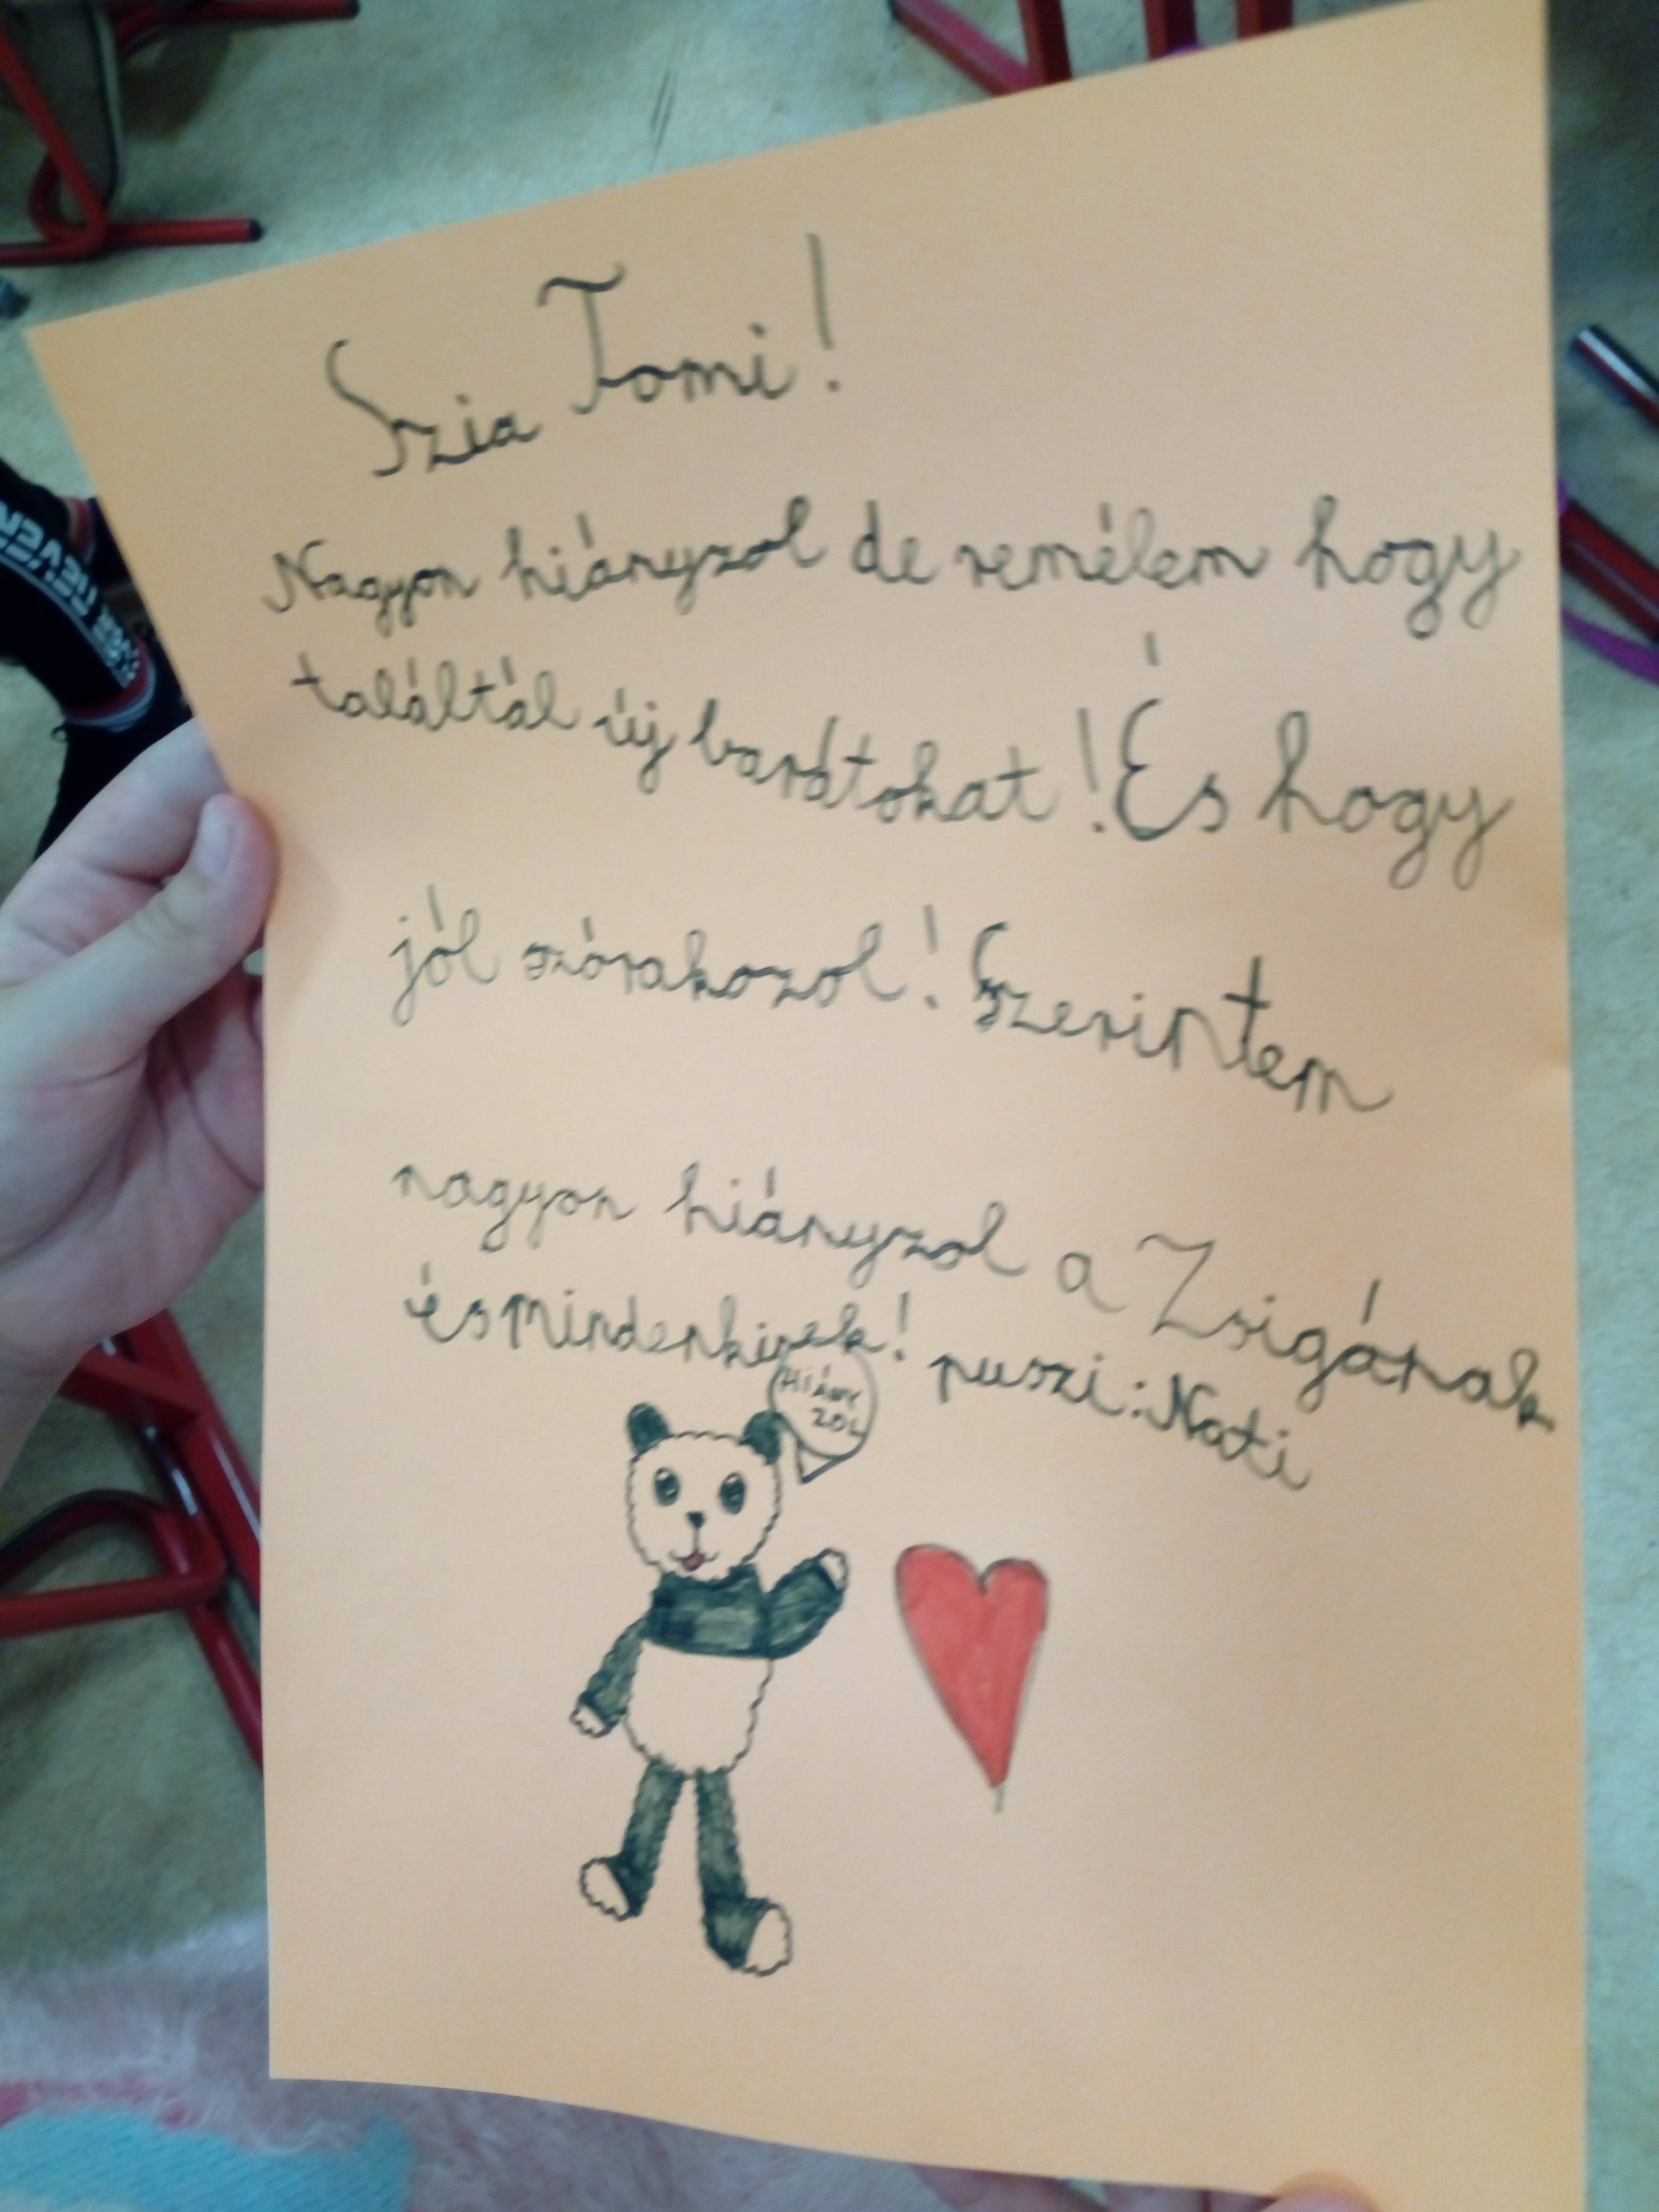 Szia Tomi!
Nagyon hiányzol de remélem hogy
találtál új barátokat! És hogy
jól szórakozol! Szerintem
nagyon hiányzol a Zsigának
és mindenkinek! puszi: Nati
HIÁNY
ZOL